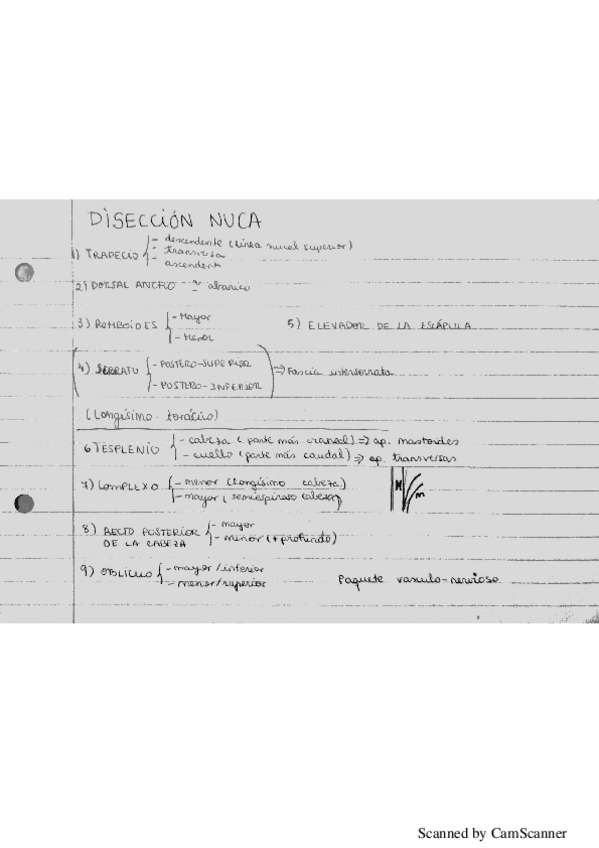 DISECCIÓN NUCA
1) TRAPECIO - descendente (línea nucal superior)
- transversa
- ascendente
2) DORSAL ANCHO ~ abanico
3) ROMBOIDES - Mayor
- Menor
5) ELEVADOR DE LA ESCÁPULA
4) SERRATO - POSTERO-SUPERIOR
- POSTERO-INFERIOR
⇒ Fascia interserrata
(Longísimo torácico)
6) ESPLENIO - cabeza (parte más craneal) ⇒ ap. mastoides
- cuello (parte más caudal) ⇒ ap. transversas
7) COMPLEXO - menor (Longísimo cabeza)
- mayor (semiespinoso cabeza)
M m
8) RECTO POSTERIOR DE LA CABEZA - mayor
- menor (+ profundo)
9) OBLICUO - mayor/inferior
- menor/superior
Paquete vasculo-nervioso
Scanned by CamScanner